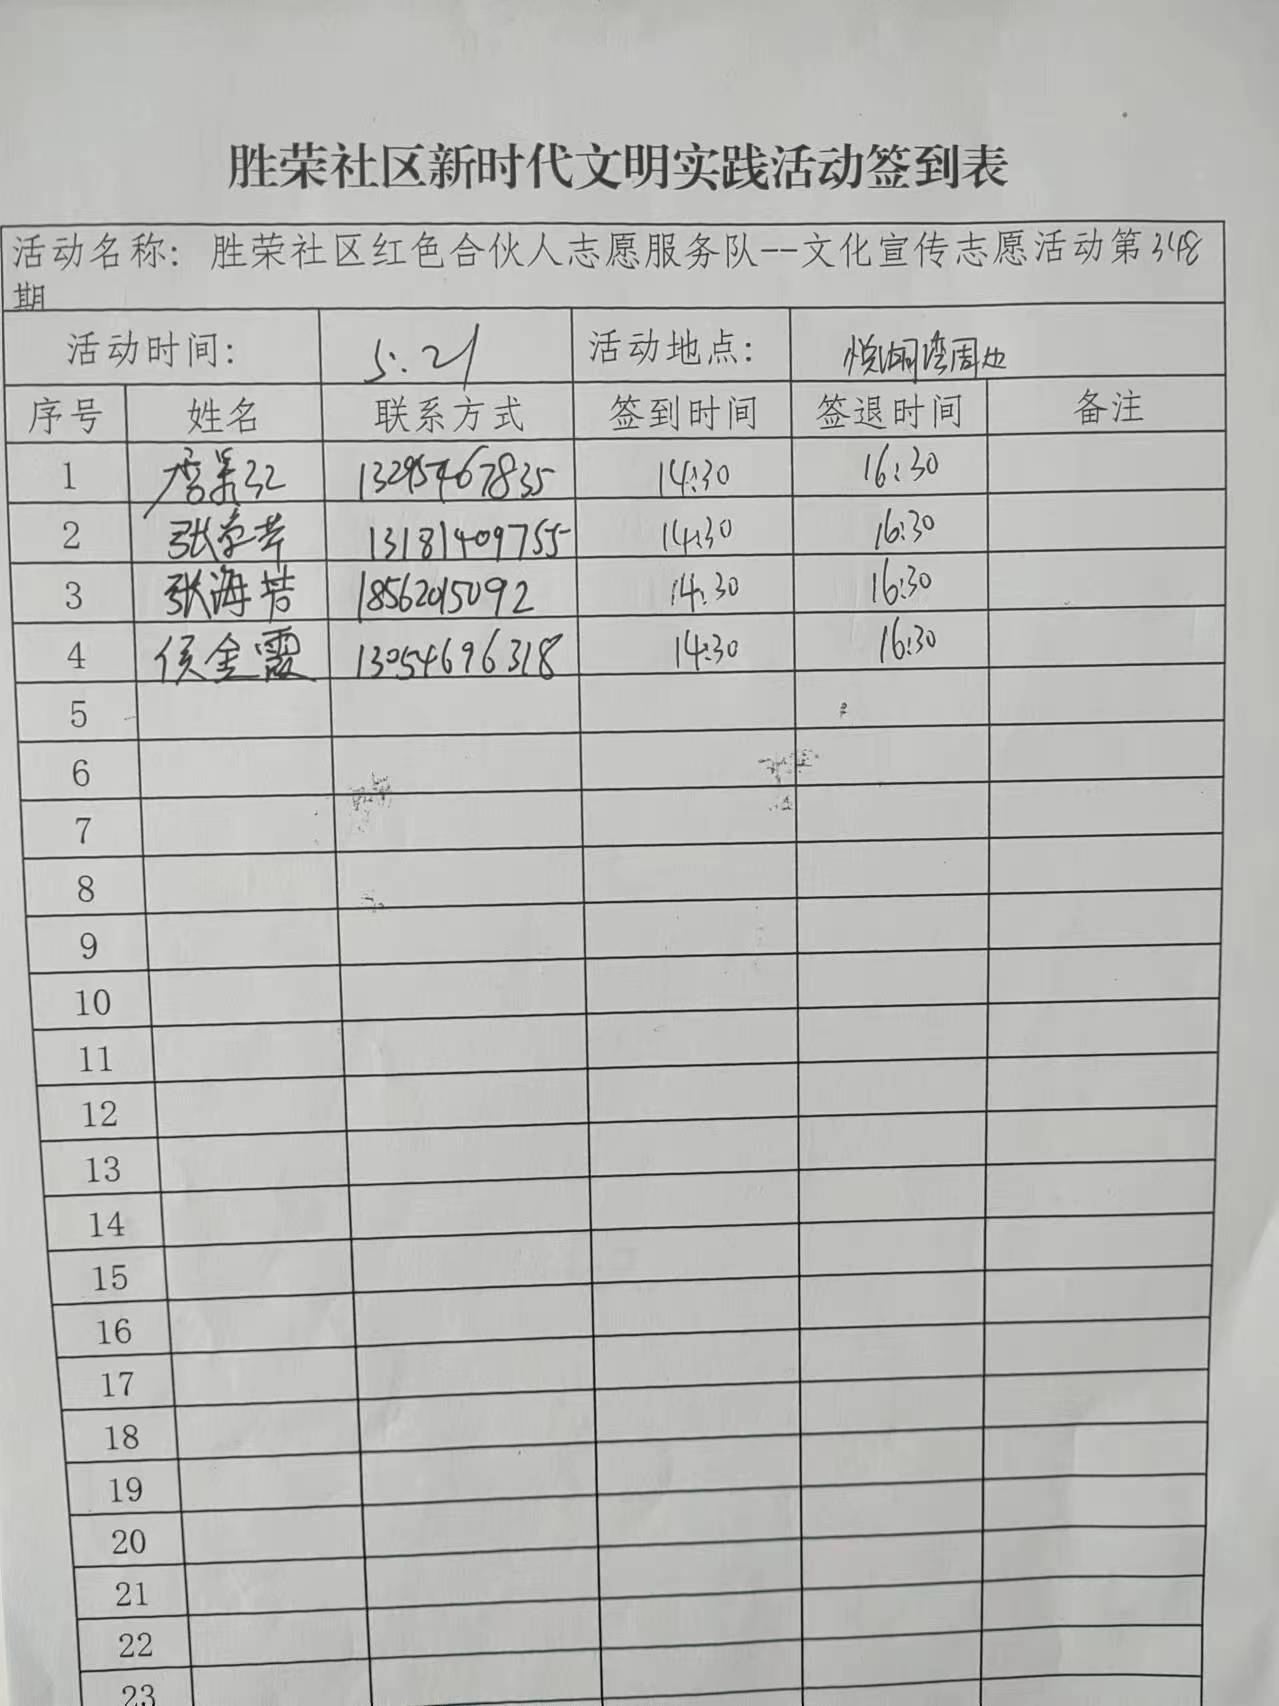 胜荣社区新时代文明实践活动签到表
活动名称：胜荣社区红色合伙人志愿服务队--文化宣传志愿活动第348
期
活动时间： 5.21 活动地点： 悦湖湾周边
序号 姓名 联系方式 签到时间 签退时间 备注
1 13295467835 14:30 16:30
2 张 13181409755 14:30 16:30
3 张海 18562015092 14:30 16:30
4 侯金霞 13054696318 14:30 16:30
5
6
7
8
9
10
11
12
13
14
15
16
17
18
19
20
21
22
23